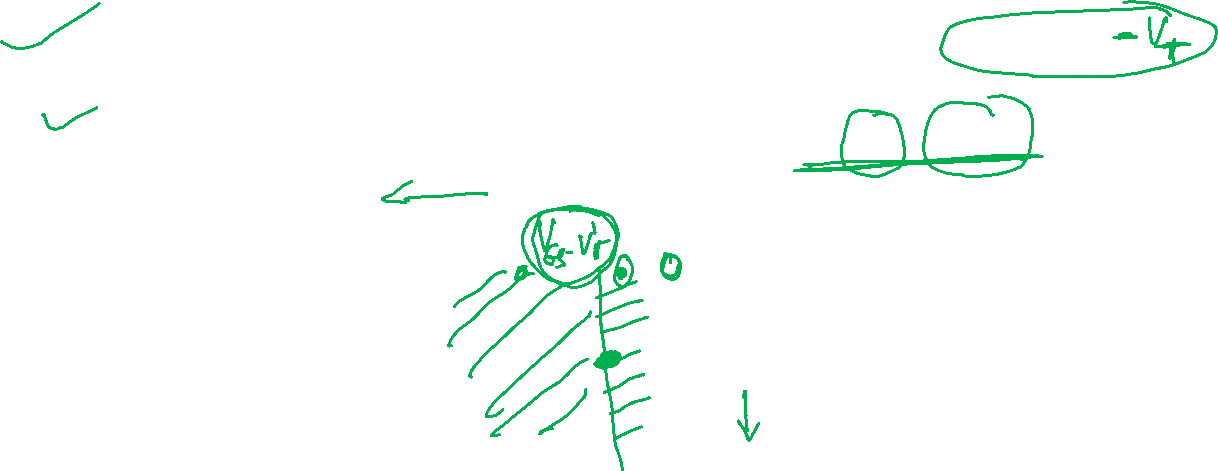 - V_T
V_GS - V_T